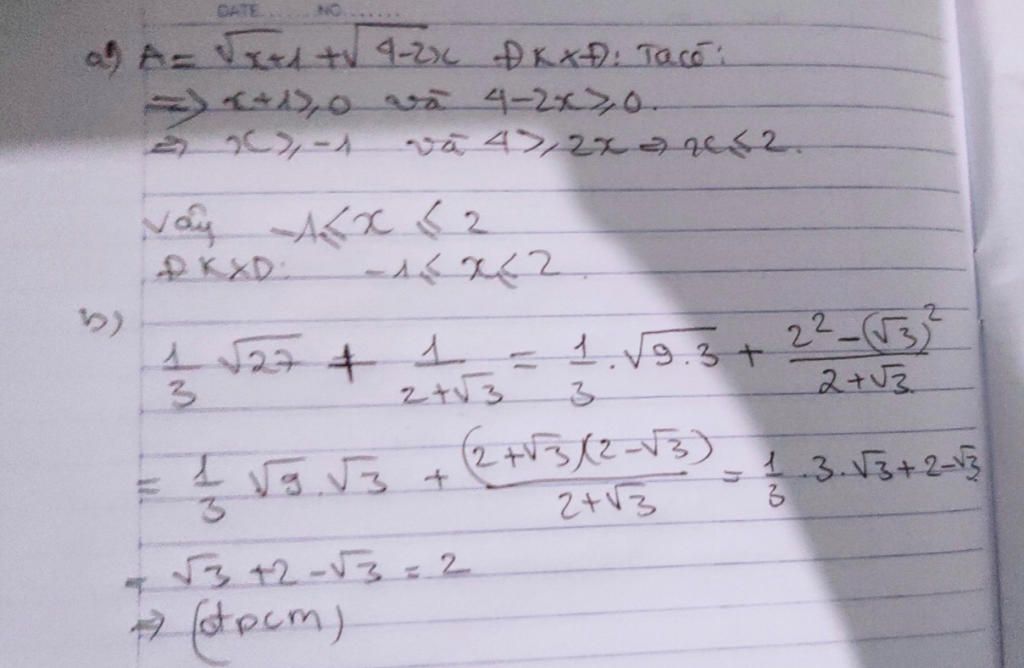 DATE......NO.......
a) A = √x+1 + √4-2x ĐKXĐ: Ta có:
=> x+1 ⩾ 0 và 4-2x ⩾ 0.
=> x ⩾ -1 và 4 ⩾ 2x => x ⩽ 2.
Vây -1 ⩽ x ⩽ 2
ĐKXD: -1 ⩽ x ⩽ 2.
b)
1/3 √27 + 1/(2+√3) = 1/3 . √9.3 + (2² - (√3)²)/(2+√3)
= 1/3 √9 . √3 + (2+√3)(2-√3)/(2+√3) = 1/3 . 3 . √3 + 2-√3
= √3 + 2 - √3 = 2
=> (đpcm)